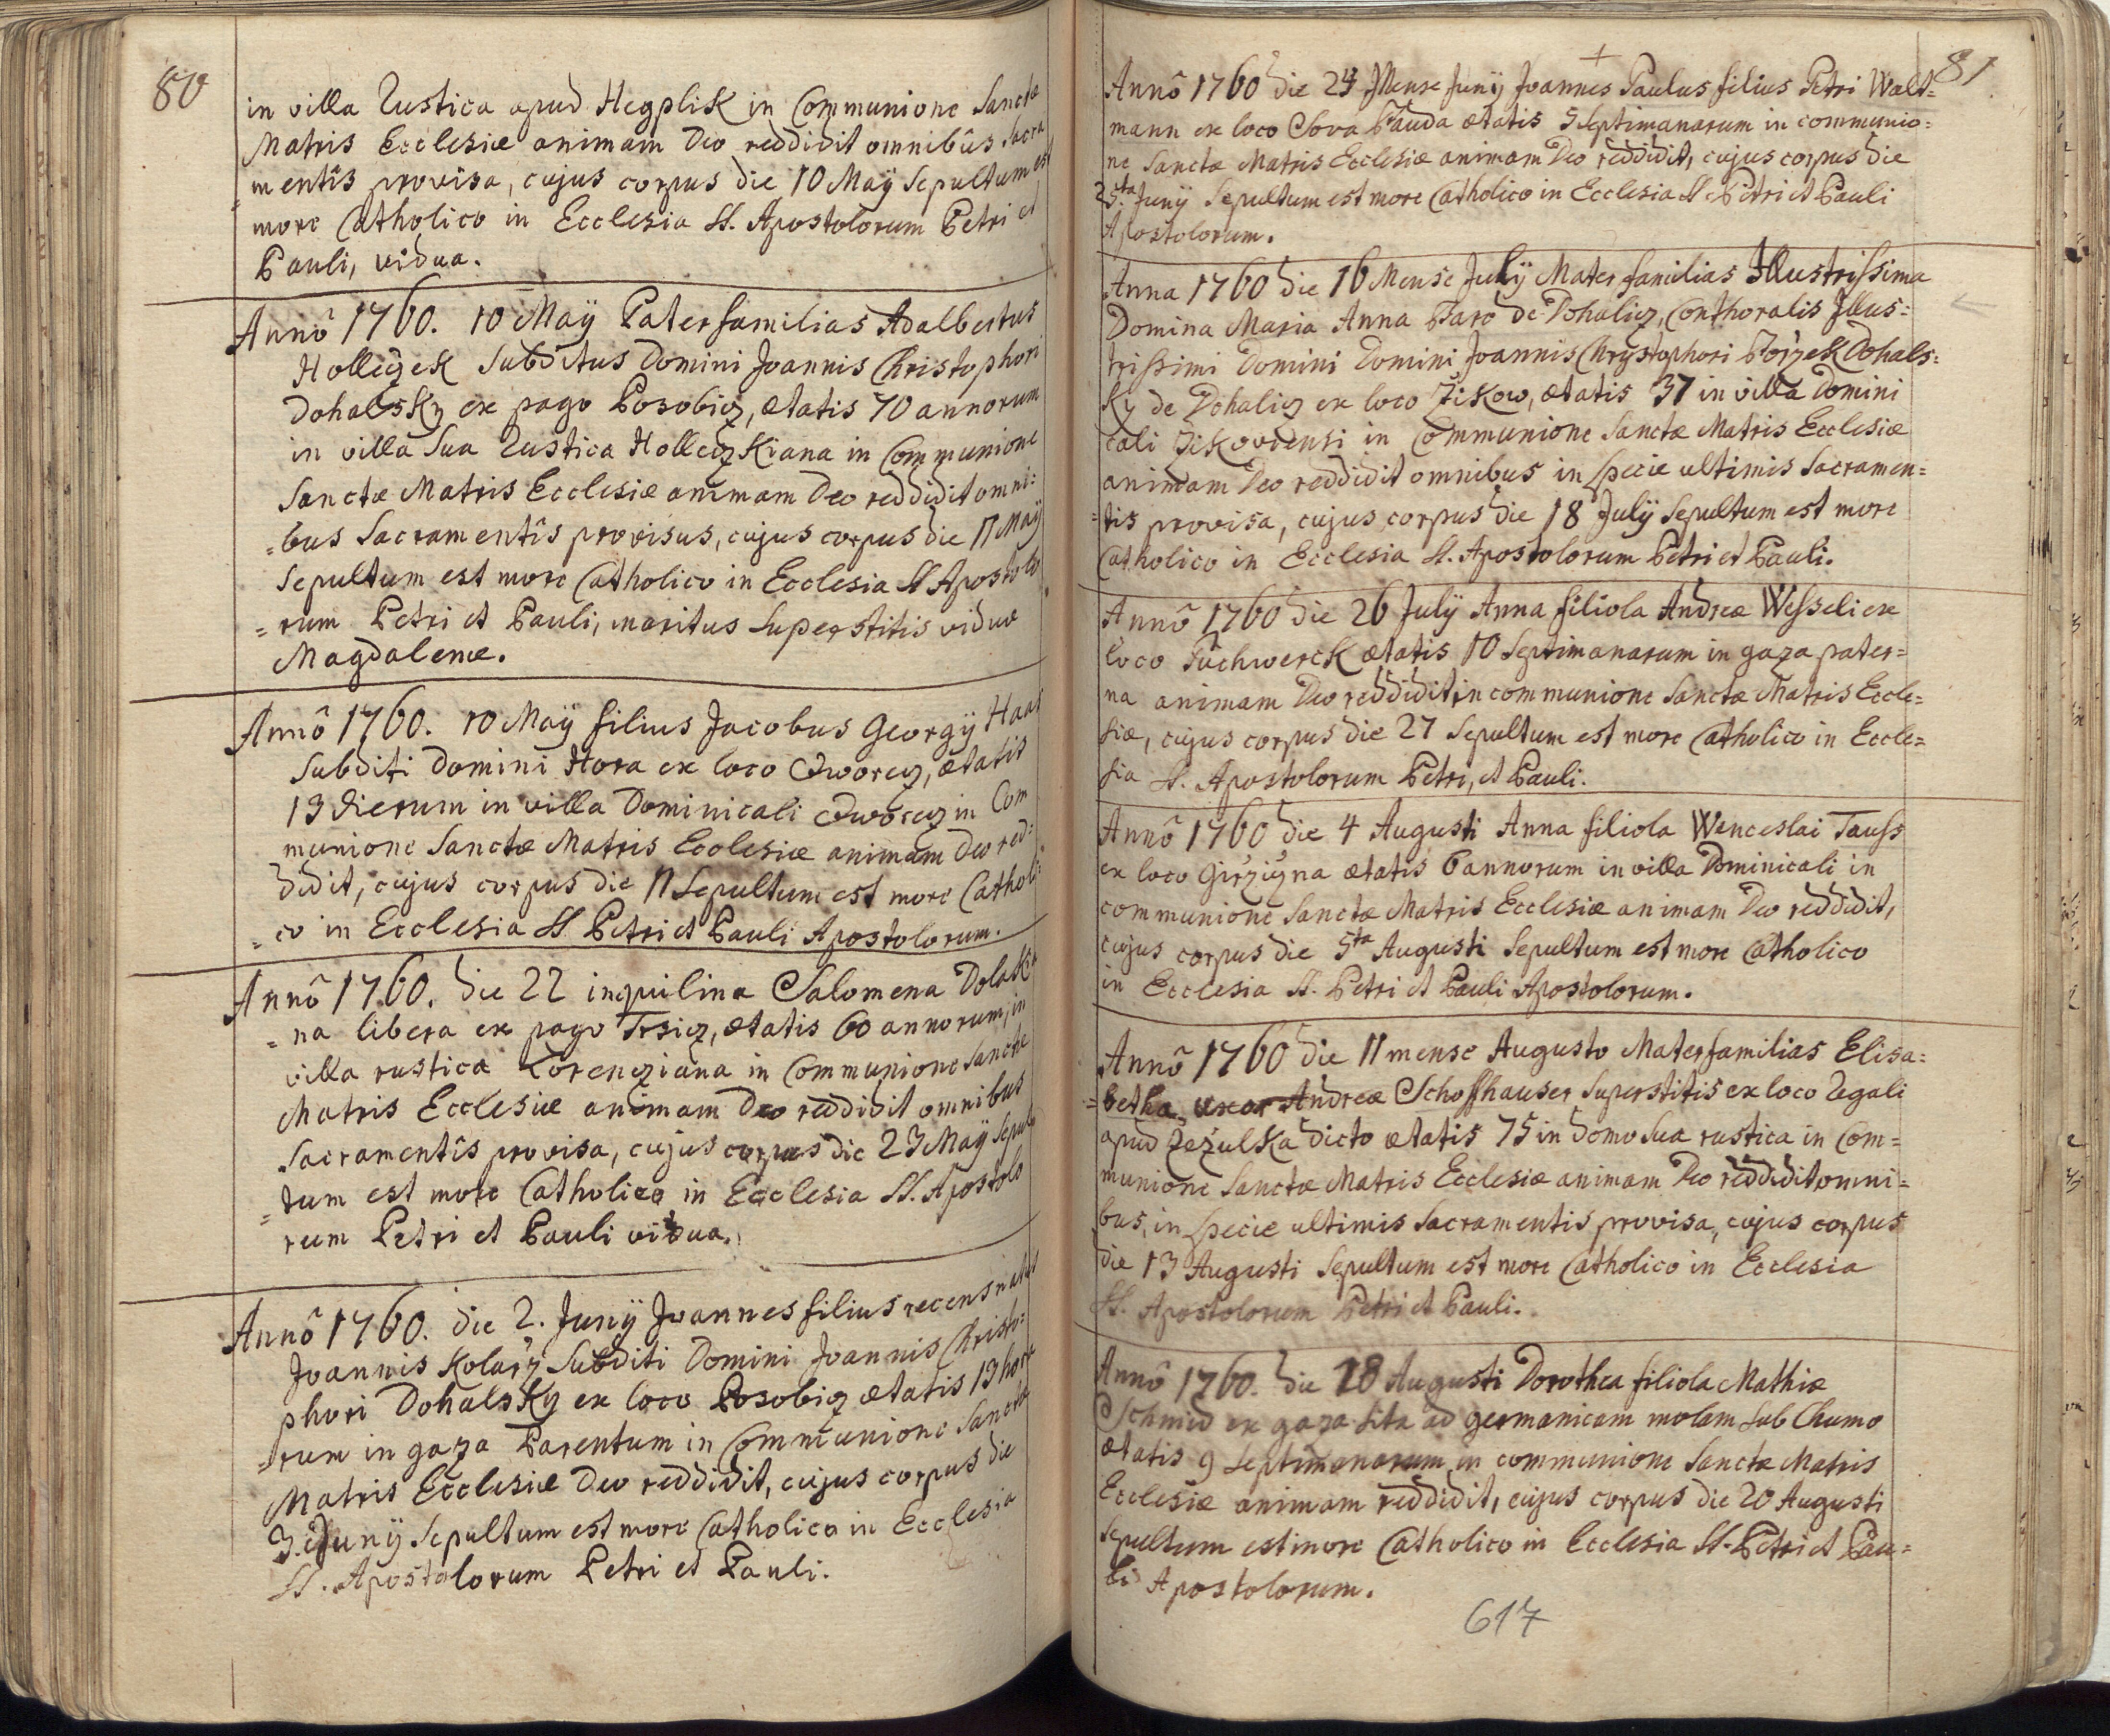 80
in villa Rustica apud Hegplik in Communione Sanctæ
Matris Ecclesiæ animam Deo reddidit omnibûs Sacra
mentîs provisa, cujus corpus die 10 Maÿ Sepultum est
more Catholico in Ecclesia SS. Apostolorum Petri et
Pauli, vidua.
Annô 1760. 10 Maÿ Paterfamilias Adalbertus
Holleczek Subditus Domini Joannis Christophori
Dohalsky ex pago Posobicz, ætatis 70 annorum
in villa Sua Rustica Holleczkiana in Communione
Sanctæ Matris Ecclesiæ animam Deo reddidit omni:
=bus Sacramentîs provisus, cujus corpus die 11 Maÿ
Sepultum est more Catholico in Ecclesia SS Apostolo
=rum Petri et Pauli, maritus Superstitis viduæ
Magdalenæ.
Annô 1760. 10 Maÿ filius Jacobus Georgÿ Haas
Subditi Domini Hora ex loco Dworcz, ætatis
13 dierum in villa Dominicali Dworcz in Com
munione Sanctæ Matris Ecclesiæ animam Deo red:
didit, cujus corpus die 11 Sepultum est more Catholi:
=co in Ecclesia SS Petri et Pauli Apostolorum.
Annô 1760. die 22 inquilina Salomena Dolaki
=na libera ex pago Trsicz, ætatis 60 annorum, in
villa rustica Lorencziana in Communione Sanctæ
Matris Ecclesiæ animam Deo reddidit omnibus
Sacramentîs provisa, cujus corpus die 23 Maÿ Sepul
=tum est more Catholico in Ecclesia SS. Apostolo
rum Petri et Pauli vidua.
Annô 1760. die 2. Junÿ Joannes filius recens natus
Joannis Kolarz Subditi Domini Joannis Christo:
phori Dohalsky ex loco Posobicz ætatis 13 hora
=rum in gaza Parentum in Communione Sanctæ
Matris Ecclesiæ Deo reddidit, cujus corpus die
3. Junÿ Sepultum est more Catholico in Ecclesia
SS. Apostolorum Petri et Pauli.
81
Annô 1760 die 24 Mense Junÿ Joannes Paulus filius Petri Walt=
mann ex loco Nova Bauda ætatis 5 Septimanarum in communio=
ne Sanctæ Matris Ecclesiæ animam Deo reddidit, cujus corpus die
25.ta Junÿ Sepultum est more Catholico in Ecclesia SS Petri et Pauli
Apostolorum.
Anna 1760 die 16 Mense Julÿ Mater familias Illustrissima
Domina Maria Anna Baro de Dohalicz, Conthoralis Illus=
trissimi Domini Domini Joannis Chrystophori Borzek Dohals=
ky de Dohalicz ex loco Zikow, ætatis 37 in villa Domini
cali Zikoviensi in Communione Sanctæ Matris Ecclesiæ
animam Deo reddidit omnibus in Specie ultimis Sacramen=
=tis provisa, cujus corpus die 18 Julÿ Sepultum est more
Catholico in Ecclesia SS. Apostolorum Petri et Pauli.
Annô 1760 die 26 Julÿ Anna filiola Andreæ Wesseli ex
loco Fuchwerck ætatis 10 Septimanarum in gaza pater=
na animam Deo reddidit, in communione Sanctæ Matris Eccle=
siæ, cujus corpus die 27 Sepultum est more Catholico in Eccle=
sia SS. Apostolorum Petri, et Pauli.
Annô 1760 die 4 Augusti Anna filiola Wenceslai Tauss
ex loco Girziczna ætatis 6 annorum in villa Dominicali in
communione Sanctæ Matris Ecclesiæ animam Deo reddidit,
cujus corpus die 5ta Augusti Sepultum est more Catholico
in Ecclesia SS. Petri et Pauli Apostolorum.
Annô 1760 die 11 mense Augusto Materfamilias Elisa=
=betha, uxor Andreæ Schoffhauser Superstitis ex loco Regali
apud Zezulka dicto ætatis 75 in domo Sua rustica in Com=
munione Sanctæ Matris Ecclesiæ animam Deo reddidit omni=
bus, in Specie ultimis Sacramentis provisa, cujus corpus
die 13 Augusti Sepultum est more Catholico in Ecclesia
SS. Apostolorum Petri et Pauli.
Annô 1760. die 18 Augusti Dorothea filiola Mathiæ
Schmid ex gaza sita ad germanicam molam sub Chumo
ætatis 9 Septimanarum in communione Sanctæ Matris
Ecclesiæ animam reddidit, cujus corpus die 20 Augusti
Sepultum est more Catholico in Ecclesia SS. Petri et Pau=
li Apostolorum.
617